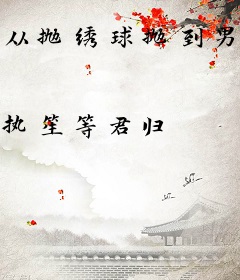 从抛绣球抛到男
执笙等君归